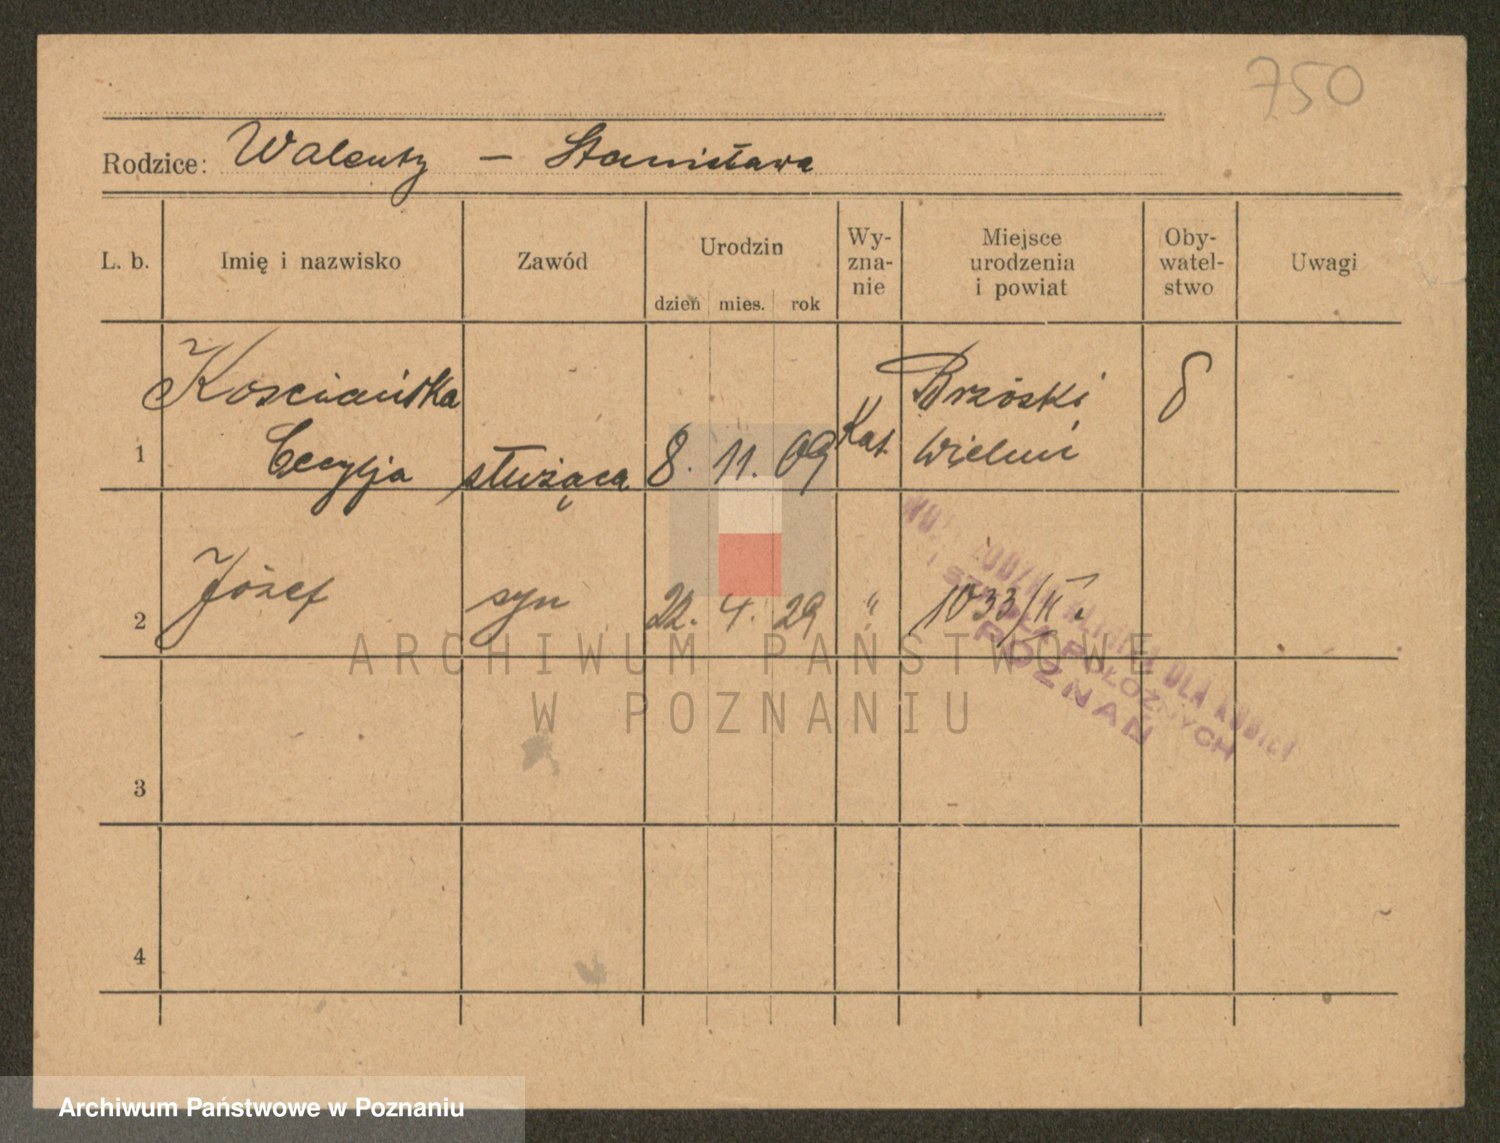 750
Rodzice: Walenty – Stanisława
L. b.
Imię i nazwisko
Zawód
Urodzin
dzień mies. rok
Wy-
zna-
nie
Miejsce
urodzenia
i powiat
Oby-
watel-
stwo
Uwagi
Kosciańska
Cecylja
1
służąca
8. 11. 09
Kat.
Brzóski
Wieluń
2 Józef syn 22. 4. 29 " 1033/II.
DLA KOBIET
POŁOŻNYCH
POZNAŃ
3
4
ARCHIWUM PAŃSTWOWE
W POZNANIU
Archiwum Państwowe w Poznaniu